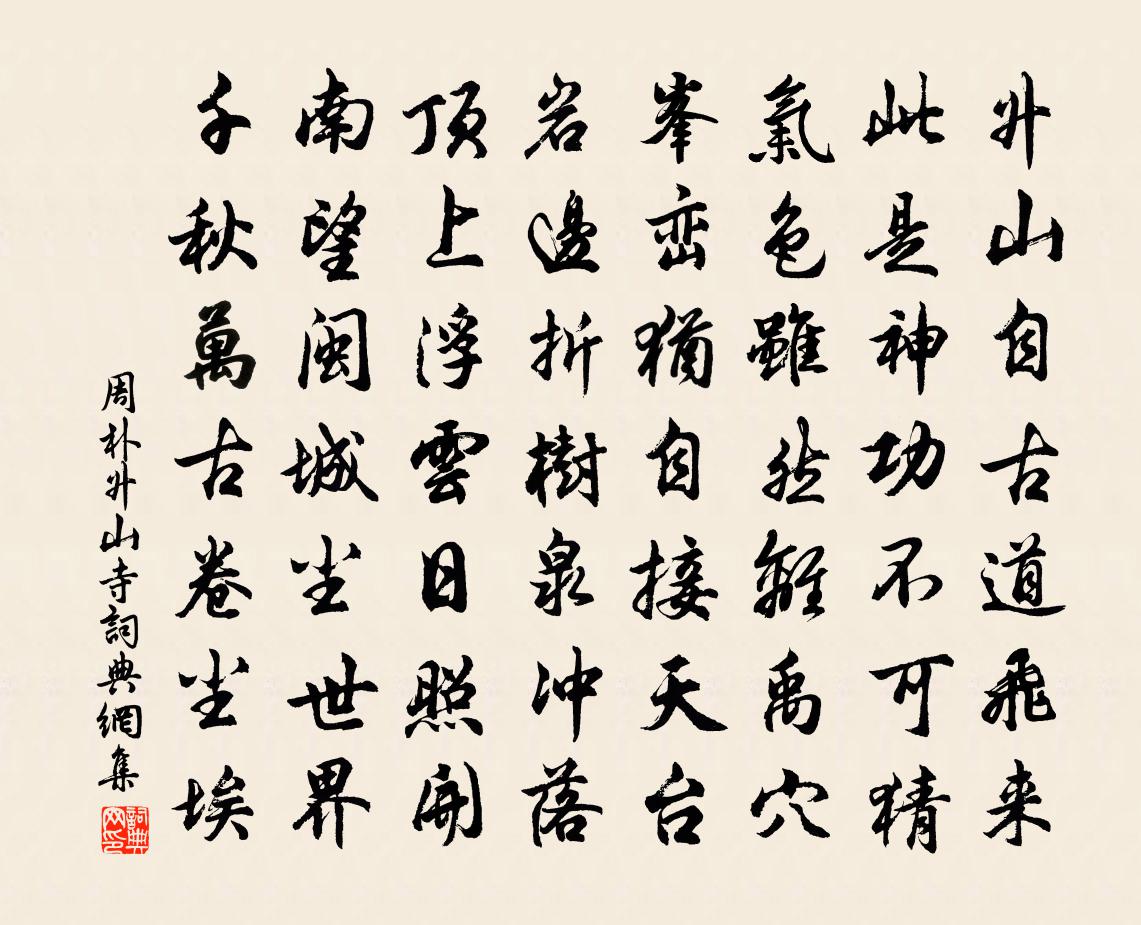 升山自古道飛来
此是神功不可猜
氣色雖然離禹穴
峯巒猶自接天台
岩邊折樹泉冲落
頂上浮雲日照開
南望閩城尘世界
千秋萬古卷尘埃
周朴升山寺詞典網集
詞典网印